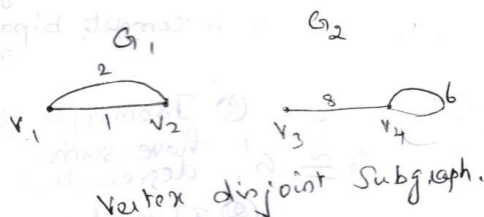 G₁
G₂
2
V₁
1
V₂
8
6
V₃
V₄
Vertex disjoint Subgraph.